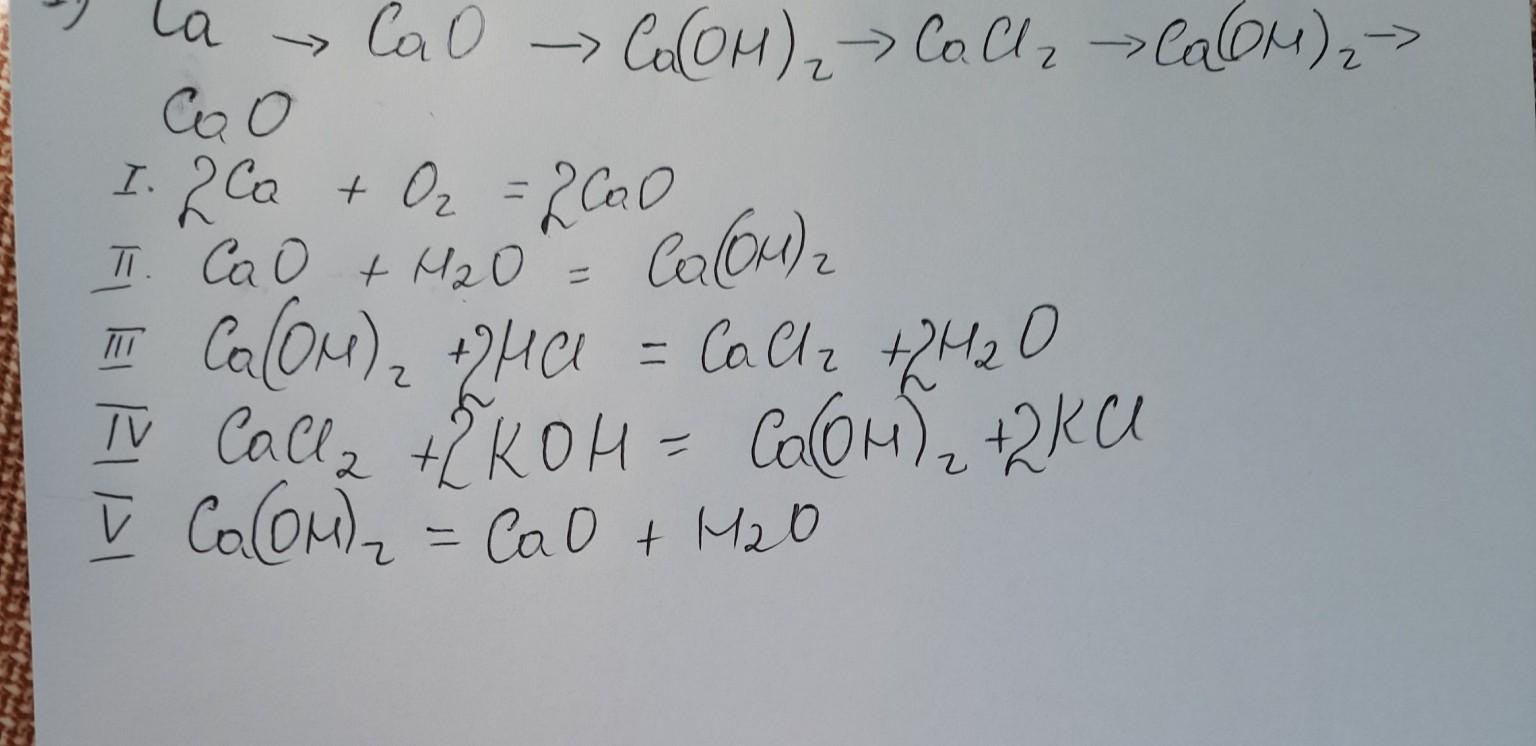 Ca → CaO → Ca(OH)₂ → CaCl₂ → Ca(OH)₂ →
CaO
I. 2Ca + O₂ = 2CaO
II. CaO + H2O = Ca(OH)₂
III Ca(OH)₂ +2HCl = CaCl₂ +2H₂O
IV CaCl₂ +2KOH = Ca(OH)₂ +2KCl
V Ca(OH)₂ = CaO + H2O